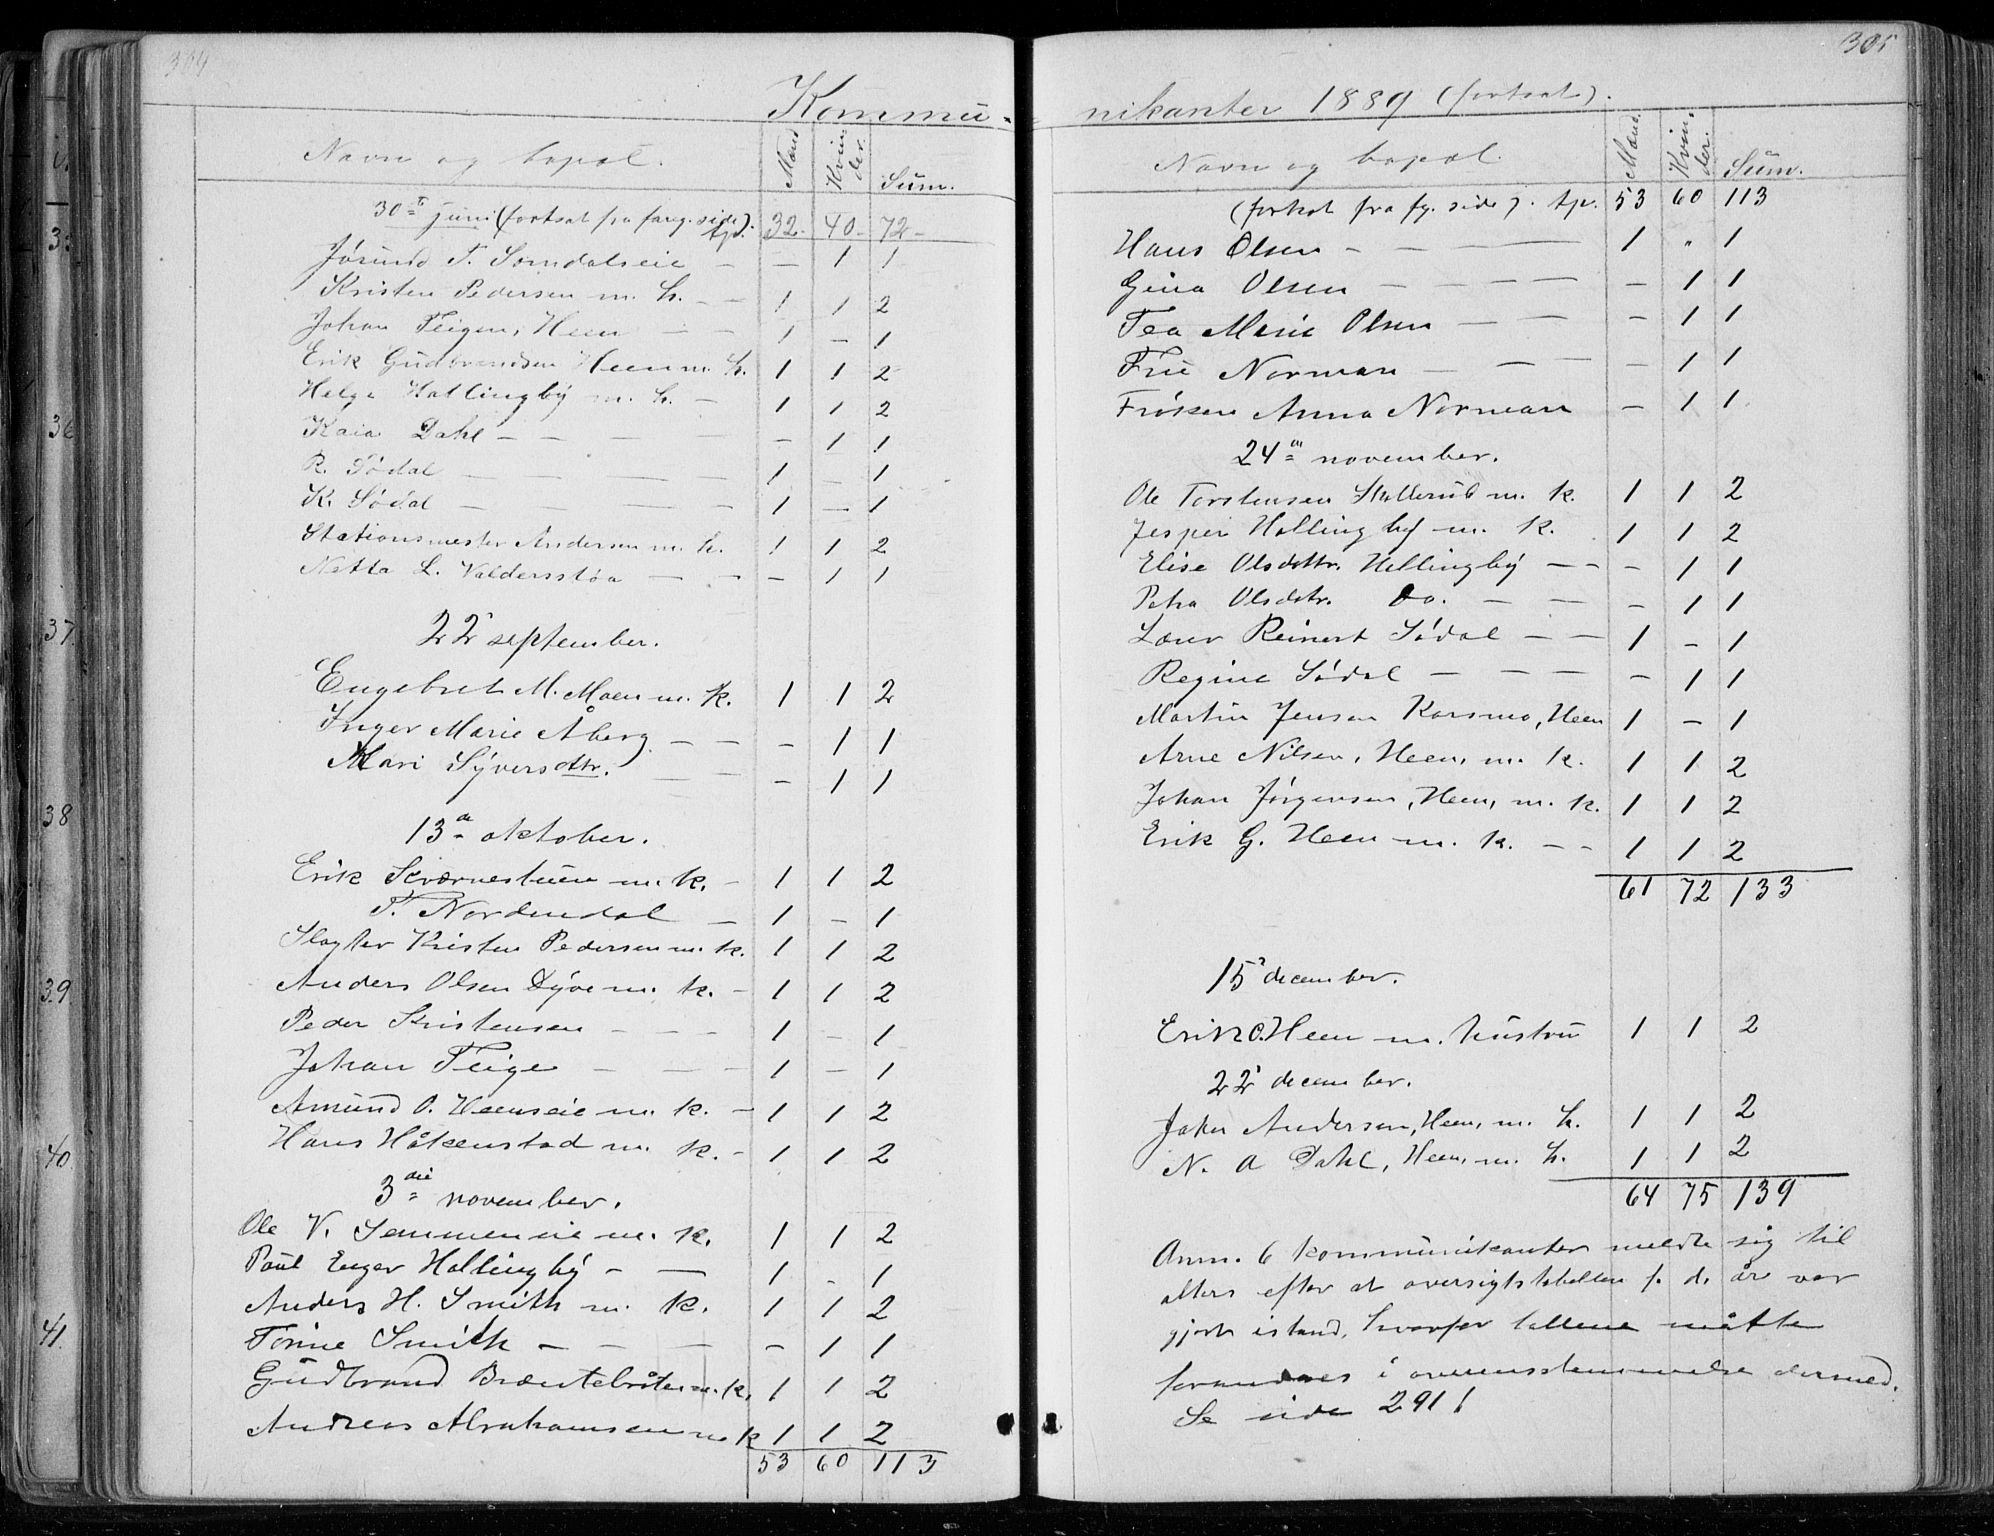 304
Kommu-
Navn og bopæl. Mænd Kvinder. Sum.
30te juni (fortsat fra foreg. side). tp. 32 - 40 - 72 -
Jørund T. Somdalseie - - - 1 1
Kristen Pedersen m. h. - - 1 1 2
Johan Teigen, Heen - - 1 - 1
Erik Gudbrandsen Heen m. h. 1 1 2
Helge Hallingby m. h. - 1 1 2
Kaia Dahl - - - - - 1 1
R. Sødal - - - 1 - 1
K. Sødal - - - - 1 - 1
Stationsmester Andersen m. h. 1 1 2
Netta L. Valdersstøa - - - 1 1
22' september.
Engebret M. Moen m. k. 1 1 2
Inger Marie Åberg - - - 1 1
Mari Syversdttr. - - - 1 1
13de oktober.
Erik Sværnestuen m. k. - 1 1 2
T. Nordendal - 1 - 1
Slagter Kristen Pedersen m. k. 1 1 2
Anders Olsen Dyve m. k. - 1 1 2
Peder Kristensen - - - 1 - 1
Johan Teige - - - 1 - 1
Amund O. Heenseie m. k. - 1 1 2
Hans Håkenstad m. k. - 1 1 2
3die november.
Ole V. Semmeneie m. k. 1 1 2
Paul Enger Hallingby - - 1 - 1
Anders H. Smith m. k. 1 1 2
Torine Smith - - - - 1 1
Gudbrand Bræntebråten m. k. 1 1 2
Andreas Abrahamsen m k 1 1 2
53 60 113
305
nikanter 1889 (fortsat).
Navn og bopæl. Mænd. Kvinder. Sum.
(fortsat fra fg. side). tp. 53 60 113
Hans Olsen - - - - 1 " 1
Gina Olsen - - - - - 1 1
Tea Marie Olsen - - - 1 1
Frue Norman - - - - 1 1
Frøken Anna Norman - 1 1
24de november.
Ole Torstensen Stallerud m. k. 1 1 2
Jesper Hallingby m. k. 1 1 2
Elise Olsdattr. Hallingby - - - 1 1
Petra Olsdtr. Do. - - - 1 1
Lærer Reinert Sødal - - 1 - 1
Regine Sødal - - - - - 1 1
Martin Jensen Karsmo, Heen 1 - 1
Arne Nilsen, Heen, m. k. 1 1 2
Johan Jørgensen, Heen, m. k. 1 1 2
Erik G. Heen m. k. - - 1 1 2
61 72 133
15' december.
Erik O. Heen m. hustru 1 1 2
22' december.
Johan Andersen, Heen, m. h. 1 1 2
N. A Dahl, Heen, m. h. 1 1 2
64 75 139
Anm. 6 kommunikanter meldte sig til
alters efter at oversigtstabellen f. d. år var
gjort istand, hvorfor tallene måtte
forandres i overensstemmelse dermed.
Se side 291!
35
36
37.
38
39.
40.
41.